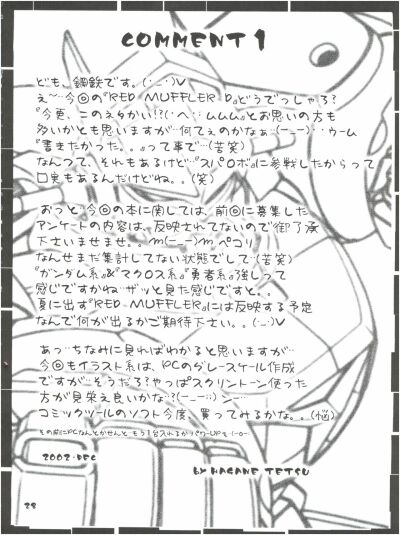 COMMENT 1
ども、鋼鉄です。(・_・)V
え〜…今回の『RED MUFFLER D』どうでっしゃろ?
『今更、このネタかい!?(・へ・;ムムム』とお思いの方も
多いかとも思いますが…何てぇのかなぁ…(ー_ー)…ウーム
『書きたかった。。』って事で…(苦笑)
なんつって、それもあるけど…『スパロボ』に参戦したからって
口実もあるんだけどね。。(笑)
おっと『今回の本に関しては、前回に募集した
アンケートの内容は、反映されてないので御了承
下さいませませ。。m(ーー)mペコリ
なんせまだ集計してない状態でして…(苦笑)
『ガンダム系』&『マクロス系』『勇者系』強しって
感じですかね…ザッと見た感じですと。。
夏に出す『RED MUFFLER』には反映する予定
なんで何が出るかご期待下さい。。(・_・)V
あっ…ちなみに見ればわかると思いますが…
今回もイラスト系は、PCのグレースケール作成
ですが…そうだろ?やっぱスクリントーン使った
方が見栄え良いかな?(ー_ー;)シ…
コミックツールのソフト今度、買ってみるかな。。(悩)
その前にPCなんとかせんと…もう1台入れるかパワーUPを(-o-
2002・DEC
BY HAGANE TETSU
28